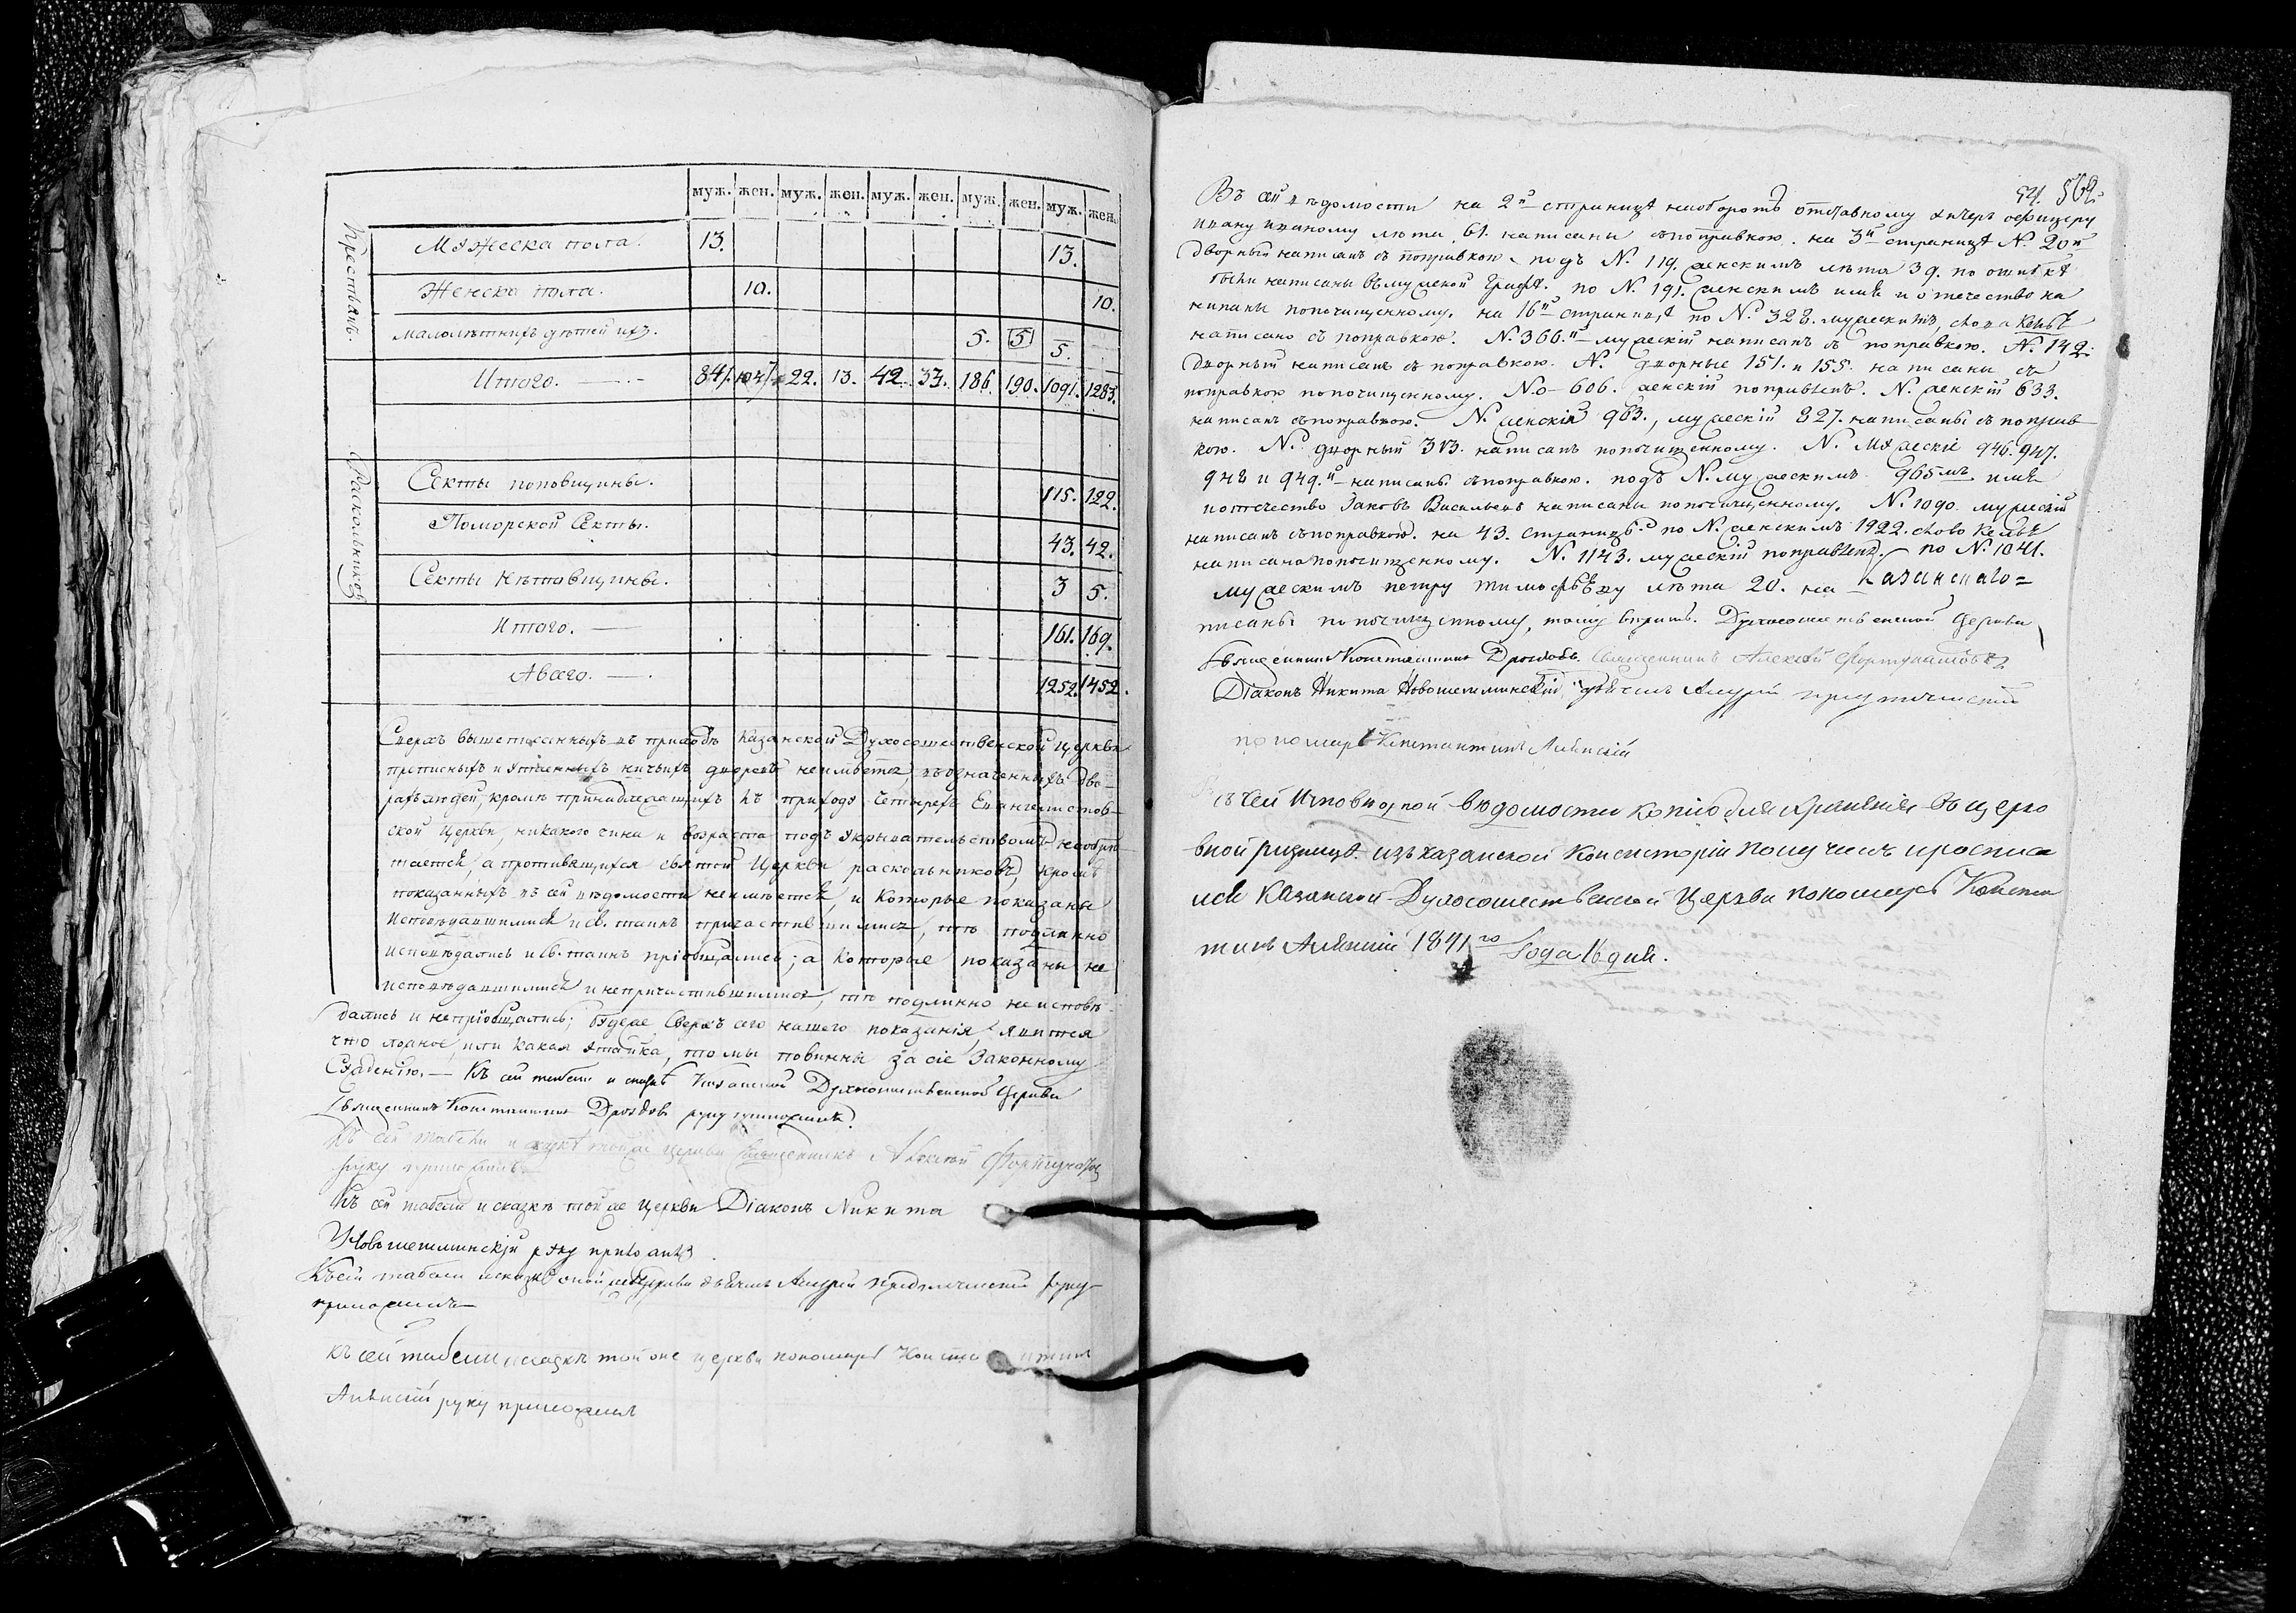 муж. жен. муж. жен. муж. жен. муж. жен. муж. жен.
Крестьянъ.
Мужеска пола. 13. 13.
Женска пола. 10. 10.
малолѣтнихъ дѣтей ихъ. 5. 5 5.
Итого. 841. 22. 13. 42. 33. 186. 190. 1091. 1283.
Раскольниковъ
Секты поповщины. 115. 122.
Поморской Секты. 43. 42.
Секты нѣтовщины. 3 5.
Итого. 161. 169.
Авсего. 1252. 1452.
Сверхъ вышеписанныхъ въ приходѣ Казанской Духосошественской церкви
прописныхъ и утаенныхъ ничьихъ дворовъ неимѣется, въ означенныхъ дво-
рахъ людей, кромѣ принадлежащихъ къ приходу Четырехъ Евангелистов-
ской Церкви, никакого чина и возраста подъ укрывательствомъ необрѣ-
тается, а противящихся святой Церкви раскольниковъ, кромѣ
показанныхъ въ сей вѣдомости неимѣется, и которые показаны
исповѣдавшимися и св. таинъ причастившимися, тѣ подлинно
исповѣдались и св. таинъ пріобщались; а которые показаны не
исповѣдавшимися и непричастившимися, тѣ подлинно неисповѣ-
дались и непріобщались; буде же сверхъ сего нашего показанія, явится
что ложное, или какая утайка, то мы повинны за сіе законному
Сужденію. — Къ сей табели и сказкѣ Казанской Духосошественской Церкви
Священникъ Константинъ Дроздовъ руку приложилъ.
Къ сей табели и сказкѣ тойже церкви Священникъ Алексѣй Фортунатовъ
руку приложилъ
Къ сей табели и сказкѣ тойже Церкви Діаконъ Никита
Новошешминскій руку приложилъ
Къ сей табели и сказкѣ оной же Церкви дьячекъ Андрей Предтеченскій руку
приложилъ
Къ сей табели и сказкѣ той же церкви пономарь Константинъ
руку приложилъ
54. 562.
Въ сей вѣдомости на 2й страницѣ наоборотѣ отставному унтеръ офицеру
Ивану Иванову лѣта 61. написаны съ поправкою. на 3й страницѣ №. 20й
дворный написанъ съ поправкою. подъ №. 119. женскимъ лѣта 39. по ошибкѣ
были написаны въ мужской графѣ. по №. 191. женскимъ имя и отечество на
писаны по почищенному. на 16й страницѣ по №. 328. мужскимъ, слова
написано съ поправкою. №. 366.й мужскій написанъ съ поправкою. №. 142.
Дворный написанъ съ поправкою. №. дворные 151. и 155. написаны съ
поправкою по почищенному. №о 606. женскій поправленъ. №. женскій 633.
написанъ съ поправкою. №. женскій 963., мужескій 827. написаны съ поправ-
кою. №. дворный 313. написанъ по почищенному. №. Мужескіе 946. 947.
948 и 949.й написаны съ поправкою. подъ №. мужескимъ 965мъ имя
и отечество Яковъ Васильевъ написаны по почищенному. №. 1090. мужескій
написанъ съ поправкою. на 43. страницѣ по №. женскимъ 1922. слово
написано по почищенному. №. 1143. мужескій поправленъ. по №. 1041.
мужескимъ Петру Тимофѣеву лѣта 20. на
писаны по почищенному, тому вѣрить. Духосошественской Церкви
Священникъ Константинъ Дроздовъ. Священникъ Алексѣй Фортунатовъ
Діаконъ Никита Новошешминскій, дьячекъ Андрей Предтеченскій
пономарь Константинъ
съ сей Исповѣдной вѣдомости копію для храненія въ церко
вной ризницѣ изъ Казанской Консисторіи получилъ и росписа
лся Казанской Духосошественской Церкви пономарь Констан
тинъ 1841го Года дня.